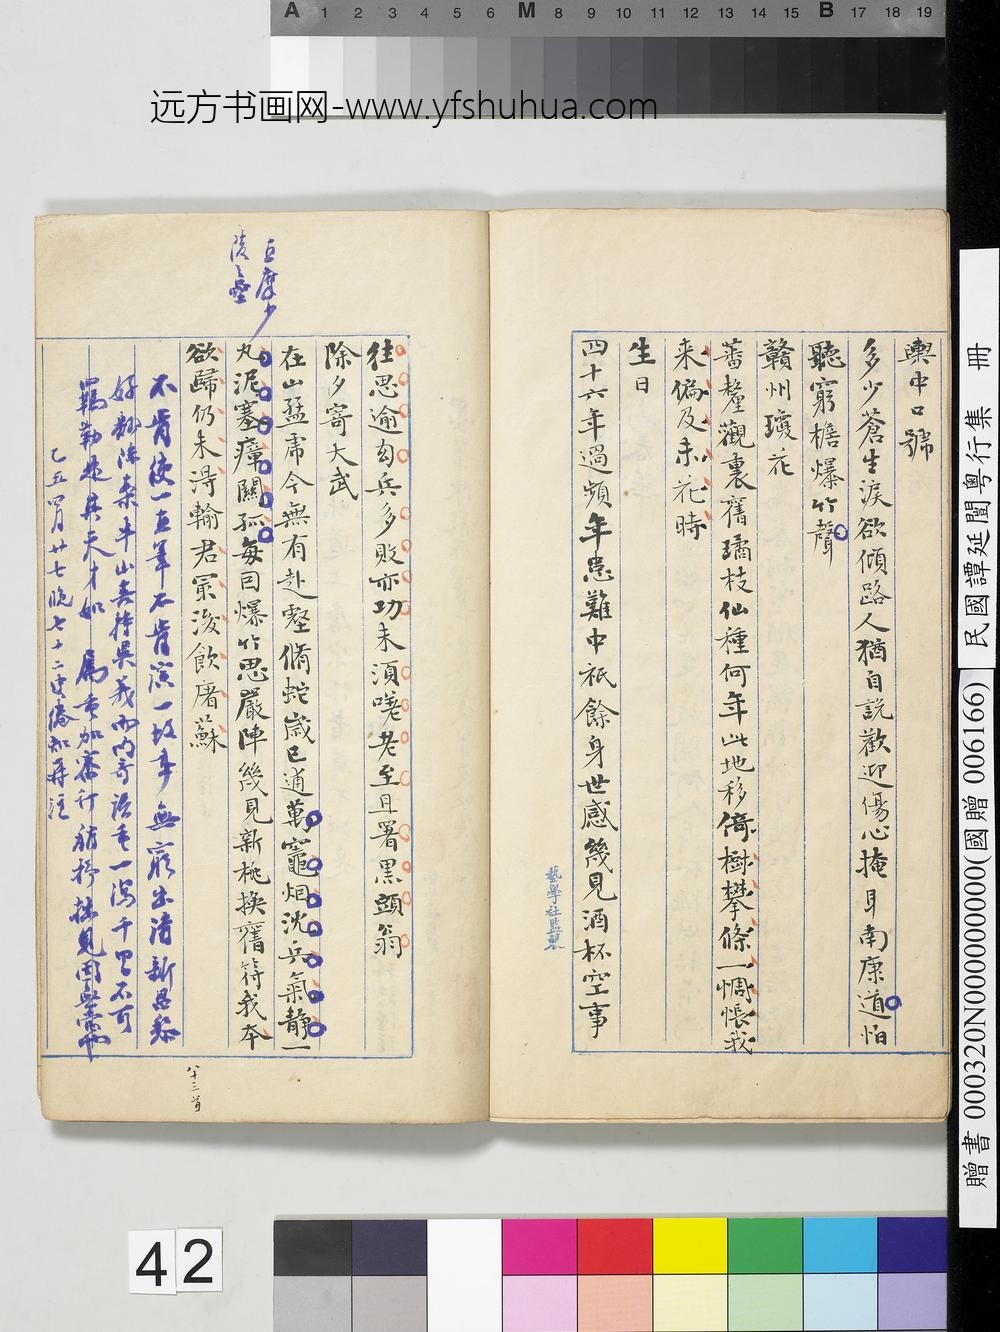 A 1 2 3 4 5 6 M 8 9 10 11 12 13 14 15 B 17 18 19
远方书画网-www.yfshuhua.com
輿中口號
多少蒼生淚欲傾路人猶自說歡迎傷心掩耳南康道怕
聽窮檐爆竹聲
贛州瓊花
蕃釐觀裏舊璚枝仙種何年此地移倚樹攀條一惆悵我
来偏及未花時
生日
四十六年過頻年患難中祇餘身世感幾見酒杯空事
藝學社監製
往思逾勾兵多敗亦功未須嗟老至且署黑頭翁
除夕寄大武
在山猛虎今無有赴壑脩蛇歲已逋萬竈烟沈兵氣静一
丸泥塞瘴關孤每回爆竹思嚴陣幾見新桃換舊符我本
欲歸仍未得輸君最後飲屠蘇
不肯使一直筆不肯演一故事無窮出清新思黎
千里不可
羈勒是其天才如
乙五四月廿七晚七十二
八十三首
民國譚延闓粵行集 冊
贈書 000320N000000000(國贈 006166)
42